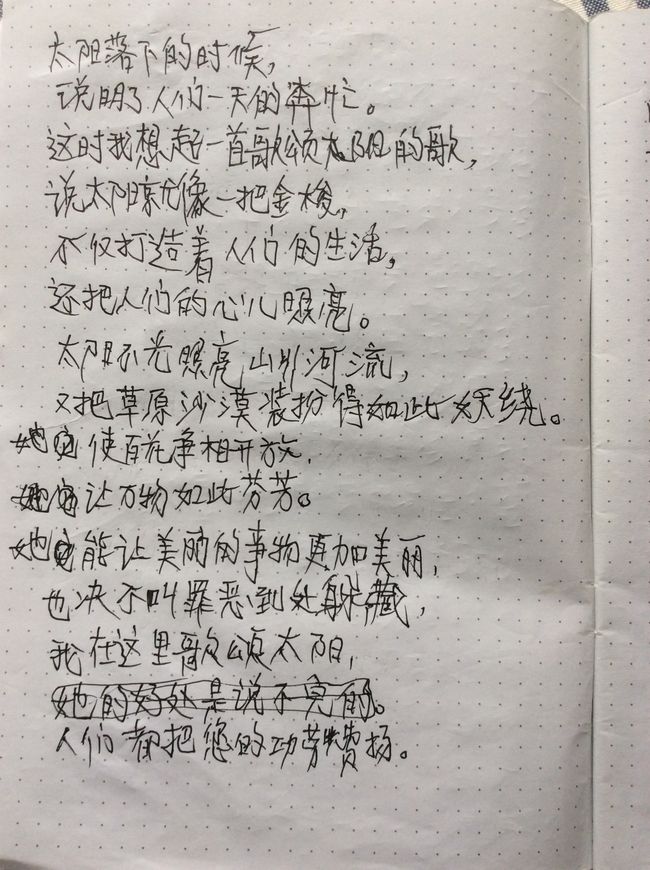 太阳落下的时候，
说明了人们一天的奔忙。
这时我想起一首歌颂太阳的歌，
说太阳就像一把金梭，
不仅打造着人们的生活，
还把人们的心儿照亮。
太阳不光照亮山川河流，
又把草原沙漠装扮得如此妖娆。
她使百花争相开放，
她让万物如此芬芳。
她能让美丽的事物更加美丽，
也决不叫罪恶到处躲藏，
我在这里歌颂太阳，
她的好处是说不完的。
人们都把您的功劳赞扬。